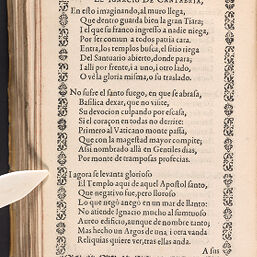 EL IGNACIO DE CANTABRIA,
En esto imaginando, al muro llega,
Que dentro guarda bien la gran Tiara;
I el que su franco ingresso a nadie niega,
Por ser comun a todos patria cara.
Entra, los templos busca, el sitio riega
Del Santuario abierto, donde para;
I alli por frente, i a uno, i otro lado,
O vè la gloria misma, o su traslado.
No sufre el santo fuego, en que se abrasa,
Basilica dexar, que no visite,
Su devocion culpando por escasa,
Si el coraçon en todas no derrite:
Primero al Vaticano monte passa,
Que con la magestad mayor compite;
Assi nombrado allà en Gentiles dias,
Por monte de tramposas profecias.
I agora se levanta glorioso
El Templo aqui de aquel Apostol santo,
Que negativo fue, pero lloroso
Lo que negò anegò en un mar de llanto:
No atiende Ignacio mucho al sumtuoso
Aureo edificio, aunque de nombre tanto;
Mas hecho un Argos de una i otra vanda
Reliquias quiere ver, tras ellas anda.
A sus